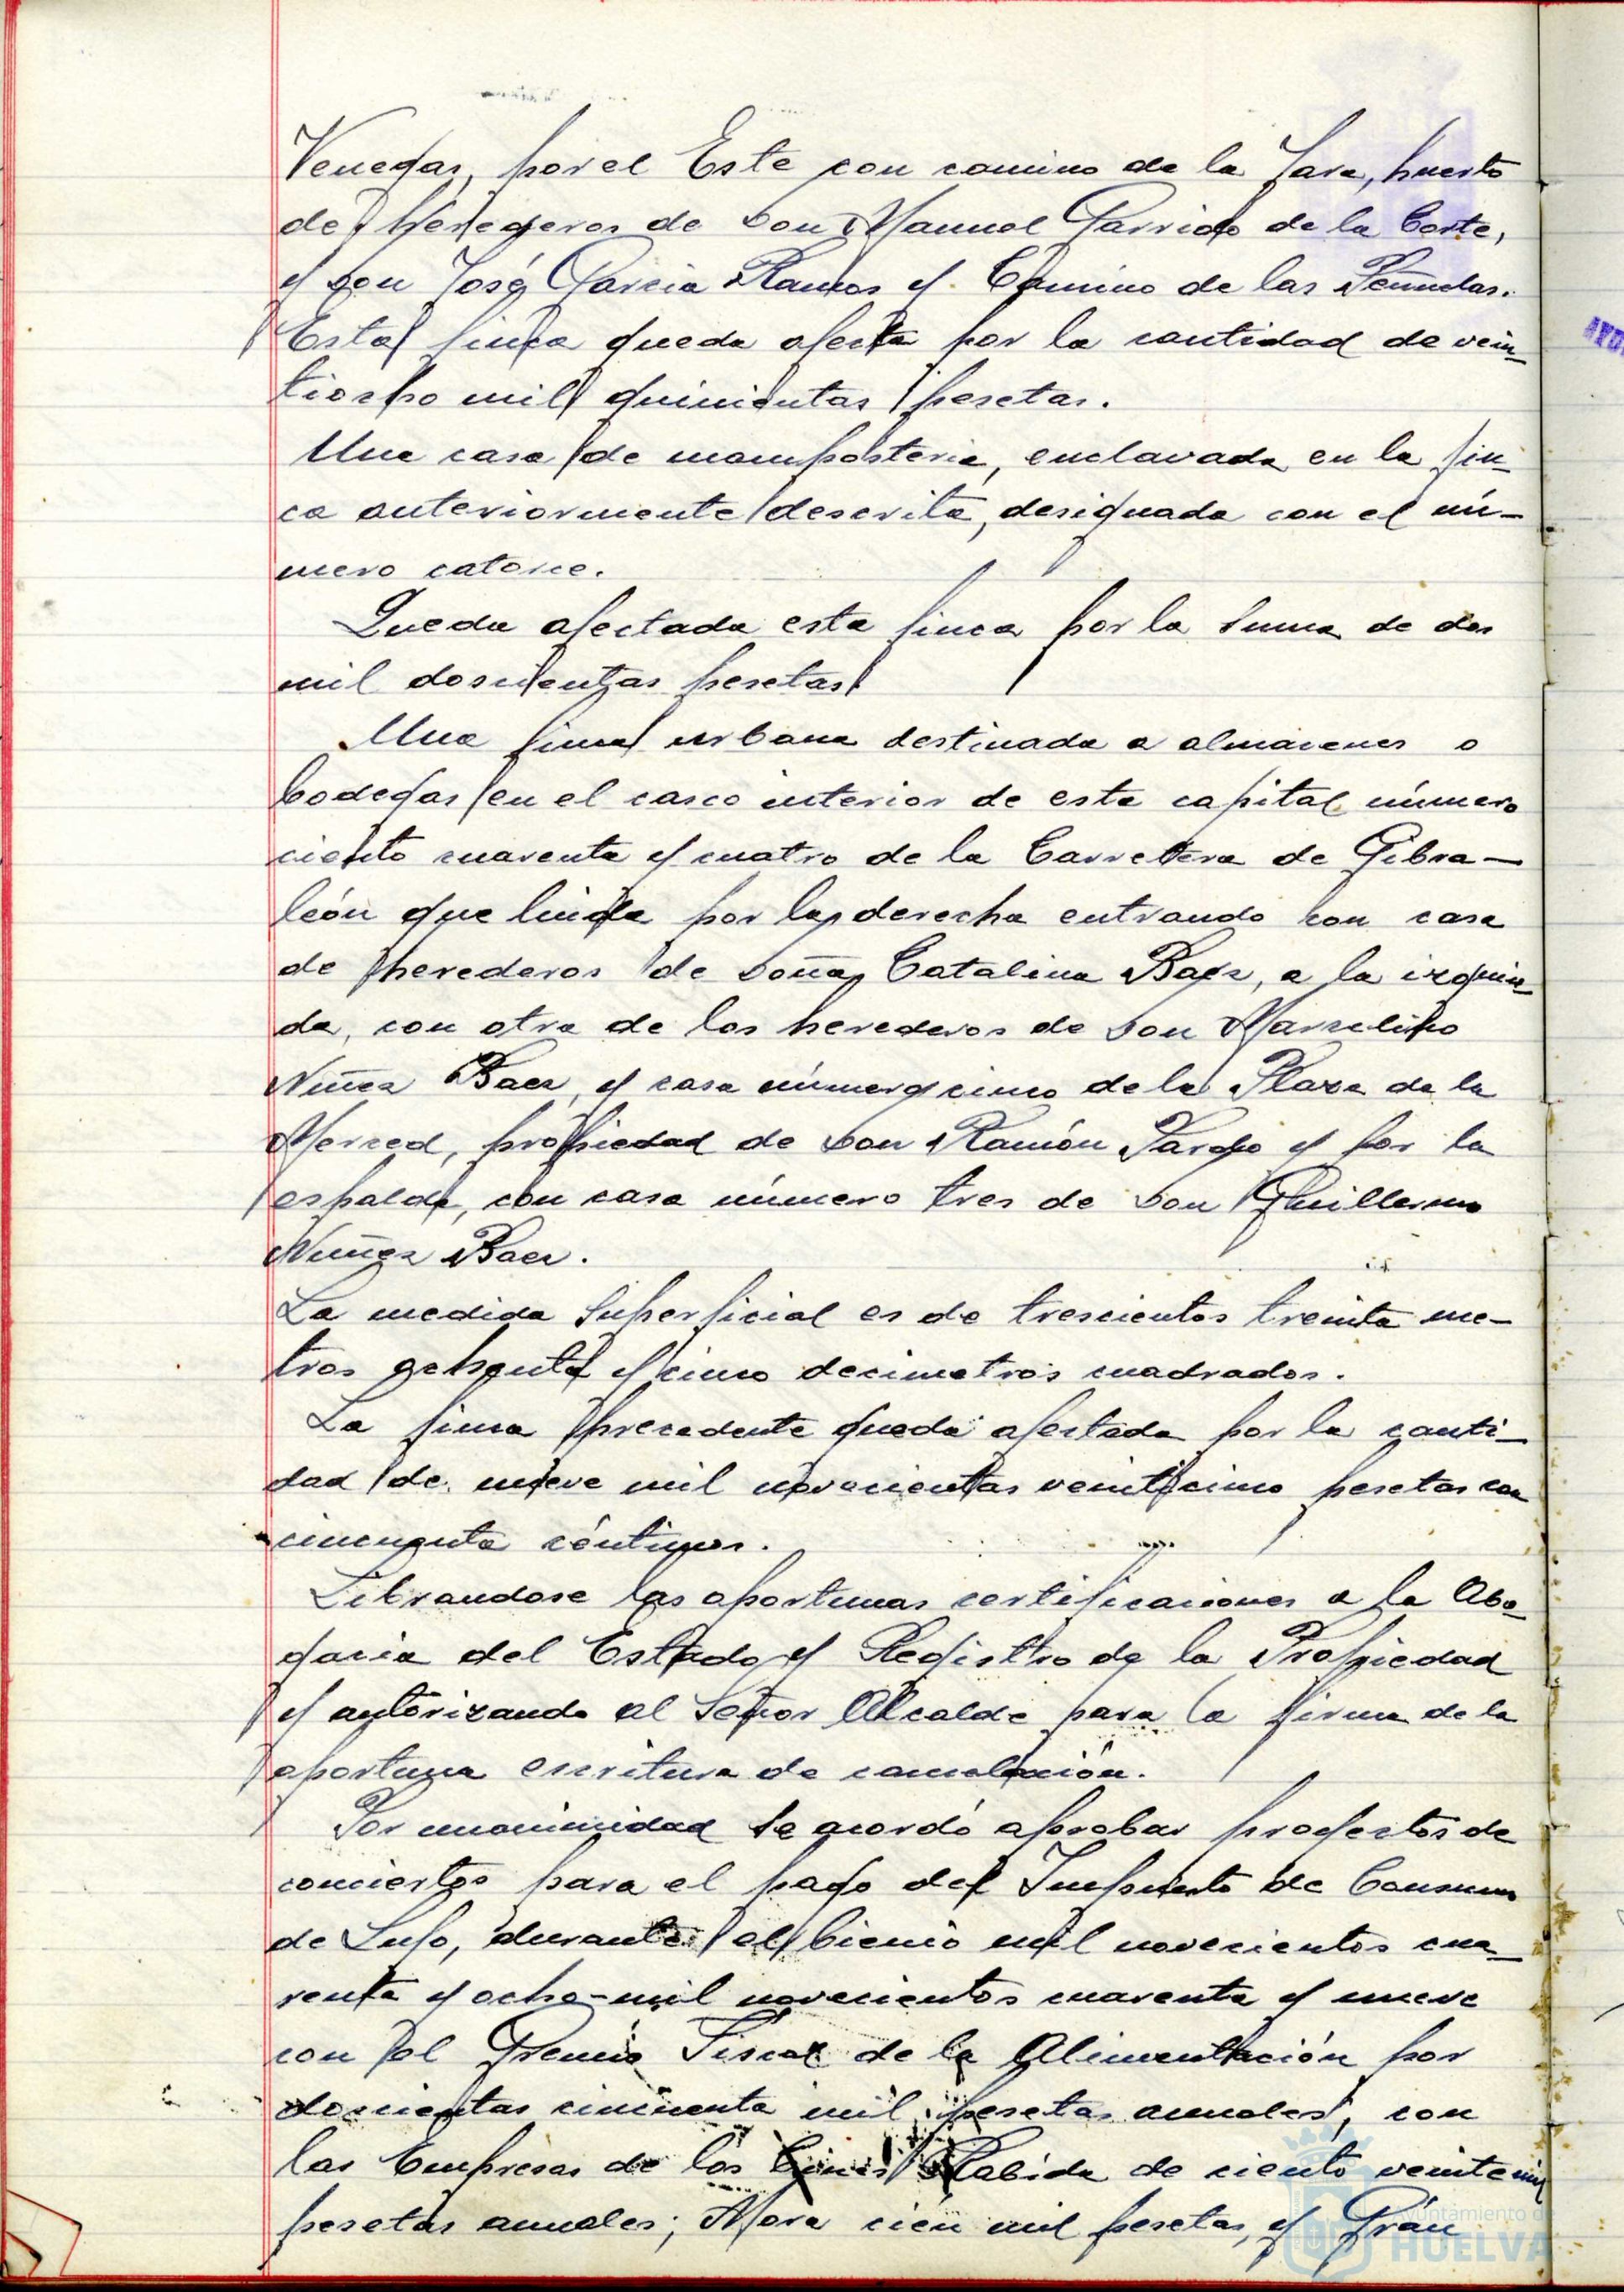 Venegas, por el Este con camino de la Jara, huerto
de herederos de Don Manuel Garrido de la Corte,
y Don José Garcia Ramos y Camino de las Peñuelas.
Esta finca queda afecta por la cantidad de vein-
tiocho mil quinientas pesetas.
Una casa de mamposteria, enclavada en la fin-
ca anteriormente descrita, designada con el nú-
mero catorce.
Queda afectada esta finca por la suma de dos
mil doscientas pesetas.
Una finca urbana destinada a almacenes o
bodegas en el casco interior de esta capital número
ciento cuarenta y cuatro de la Carretera de Gibra-
león que linda por la derecha entrando con casa
de herederos de Doña Catalina Baez, a la izquier-
da, con otra de los herederos de Don Marcelino
Nuñez Baez, y casa número cinco de la Plaza de la
Merced, propiedad de Don Ramón Pardo y por la
espalda, con casa número tres de Don Guillermo
Nuñez Baez.
La medida superficial es de trescientos treinta me-
tros ochenta y cinco decimetros cuadrados.
La finca precedente queda afectada por la canti-
dad de nueve mil novecientas veinticinco pesetas con
cincuenta céntimos.
Librandose las oportunas certificaciones a la Abo-
gacia del Estado y Registro de la Propiedad
y autorizando al Señor Alcalde para la firma de la
oportuna escritura de cancelación.
Por unanimidad se acordó aprobar proyectos de
conciertos para el pago del Impuesto de Consumo
de Lujo, durante el bienio mil novecientos cua-
renta y ocho-mil novecientos cuarenta y nueve
con el Gremio Fiscal de la Alimentación por
doscientas cincuenta mil pesetas anuales, con
las Empresas de los Cines Rabida de ciento veinte mil
pesetas anuales; Mora cien mil pesetas, y Gran
Ayuntamiento de
HUELVA